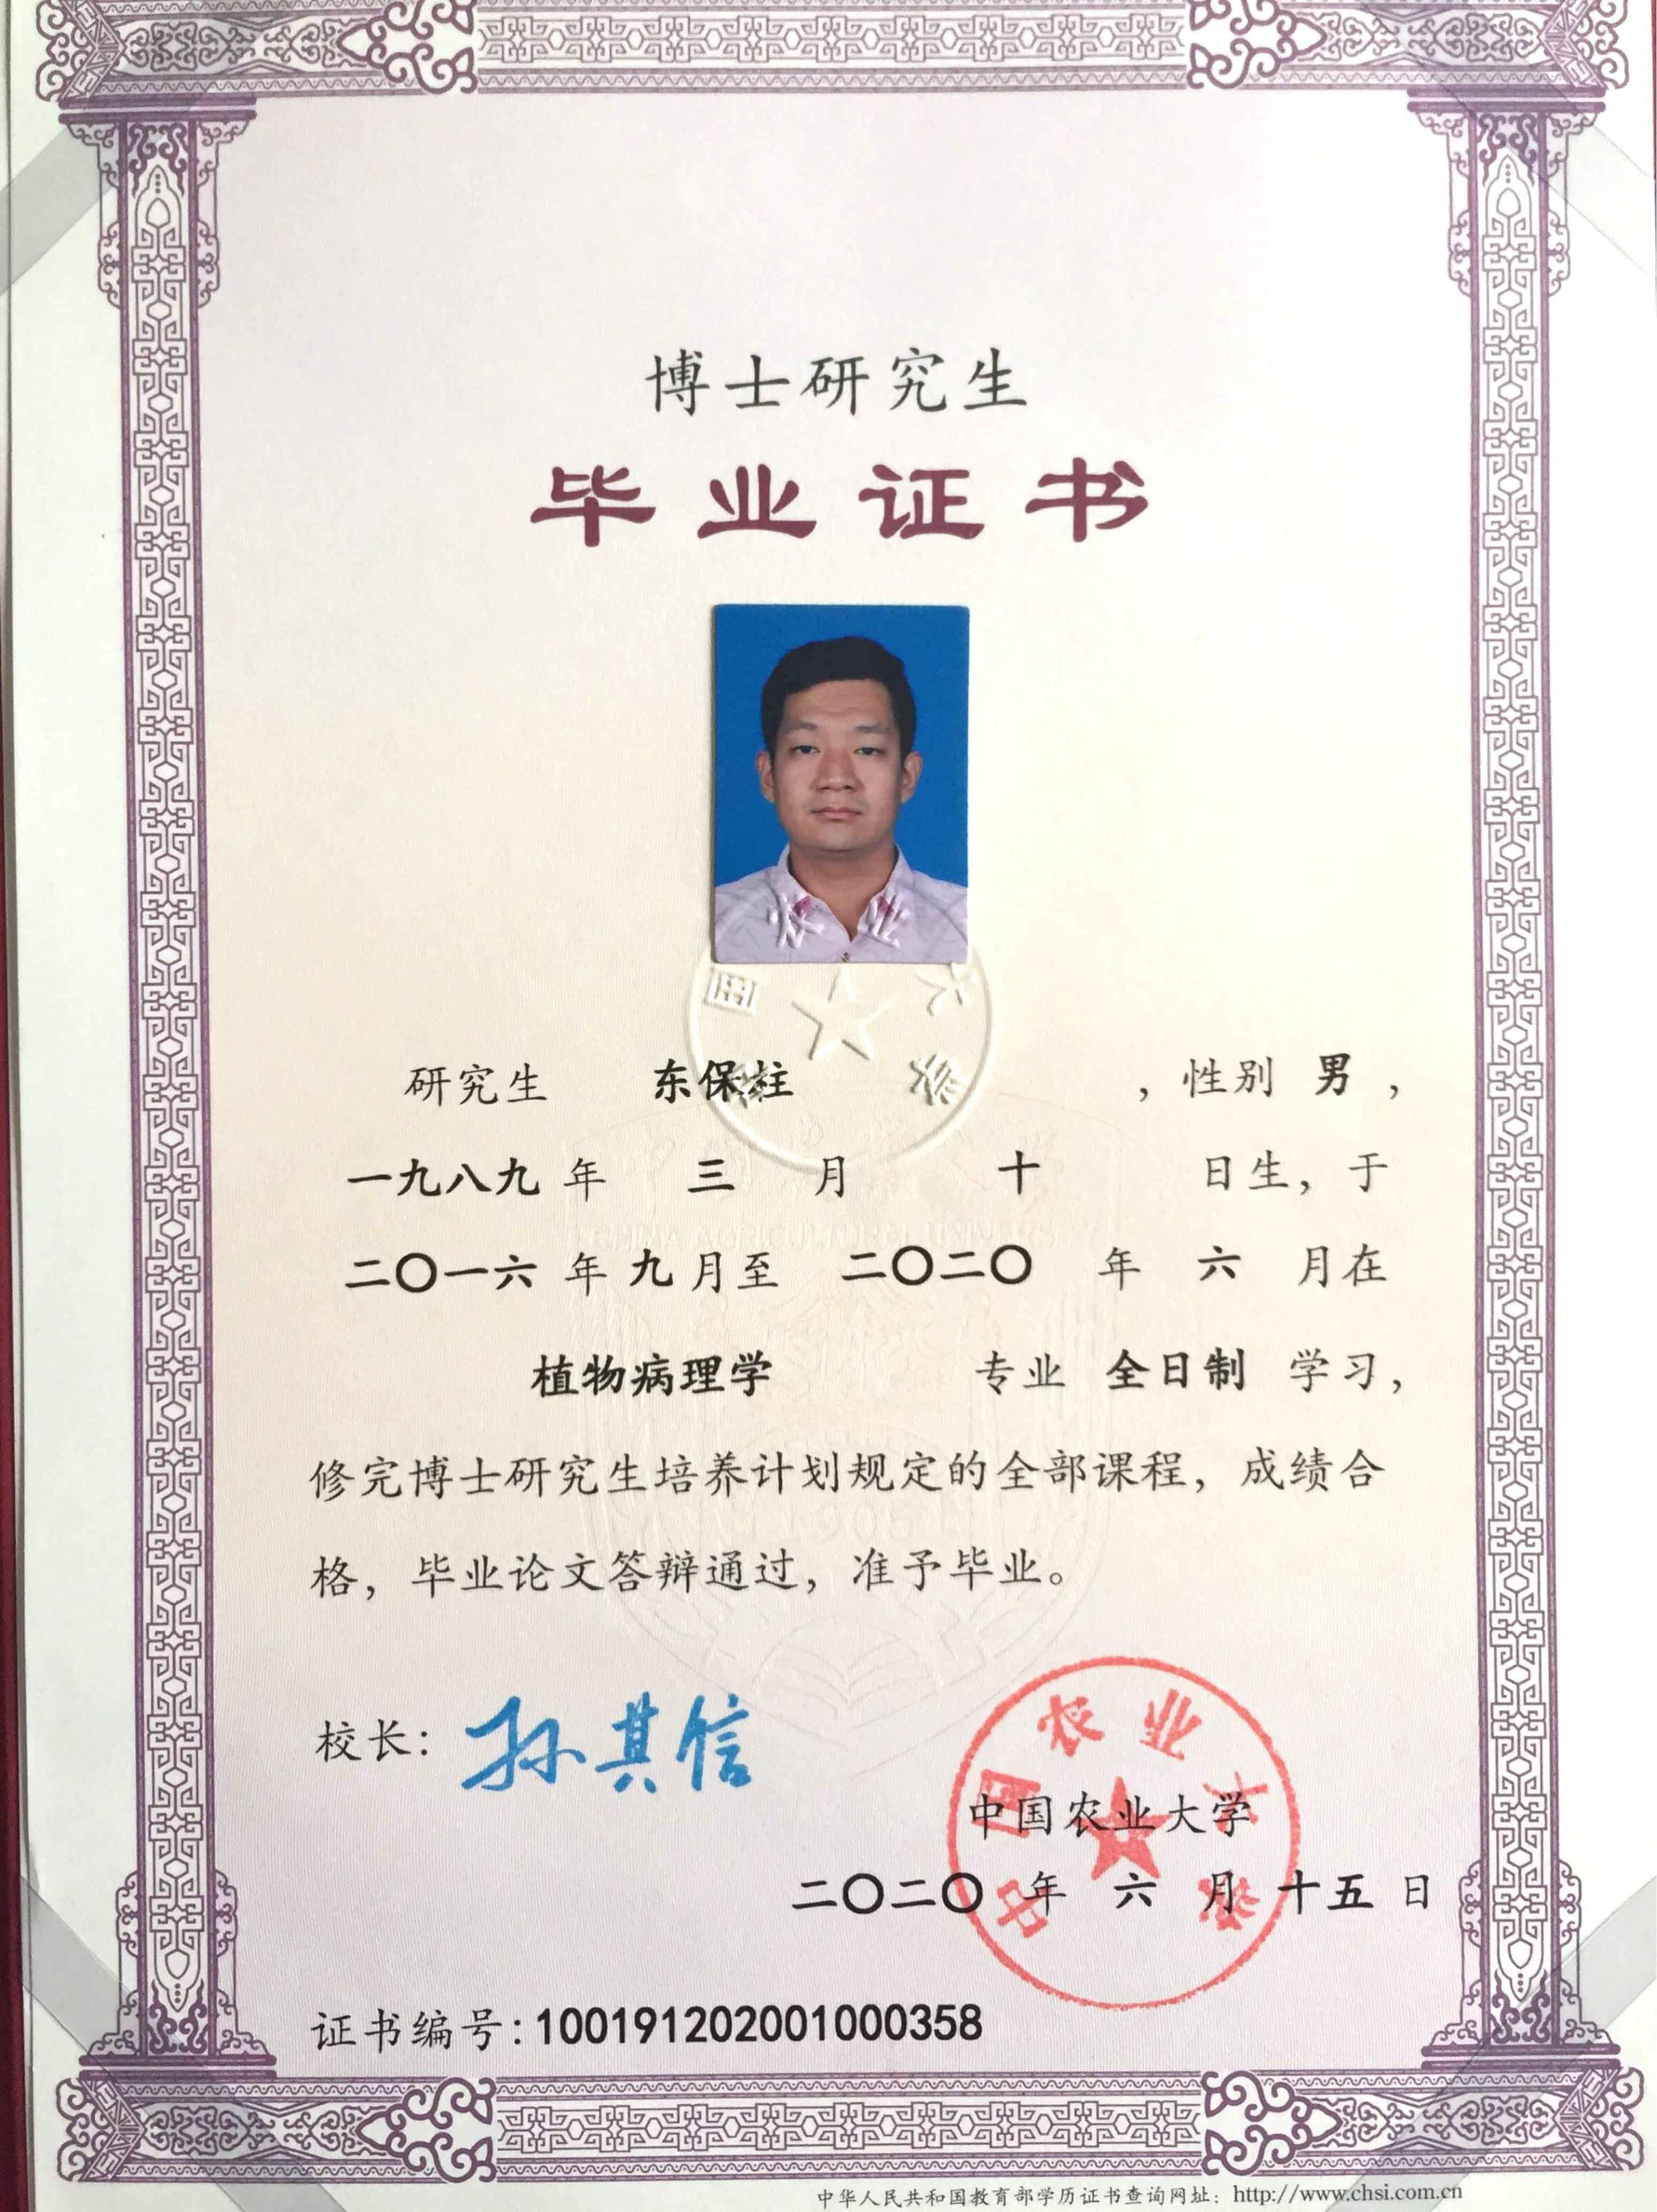 博士研究生
毕业证书
研究生 东保柱 ，性别 男，
一九八九 年 三 月 十 日生，于
二〇一六 年 九 月至 二〇二〇 年 六 月在
植物病理学 专业 全日制 学习，
修完博士研究生培养计划规定的全部课程，成绩合
格，毕业论文答辩通过，准予毕业。
校长：孙其信
中国农业大学
中国农业大学
二〇二〇 年 六 月 十五 日
证书编号：100191202001000358
中华人民共和国教育部学历证书查询网址：http://www.chsi.com.cn